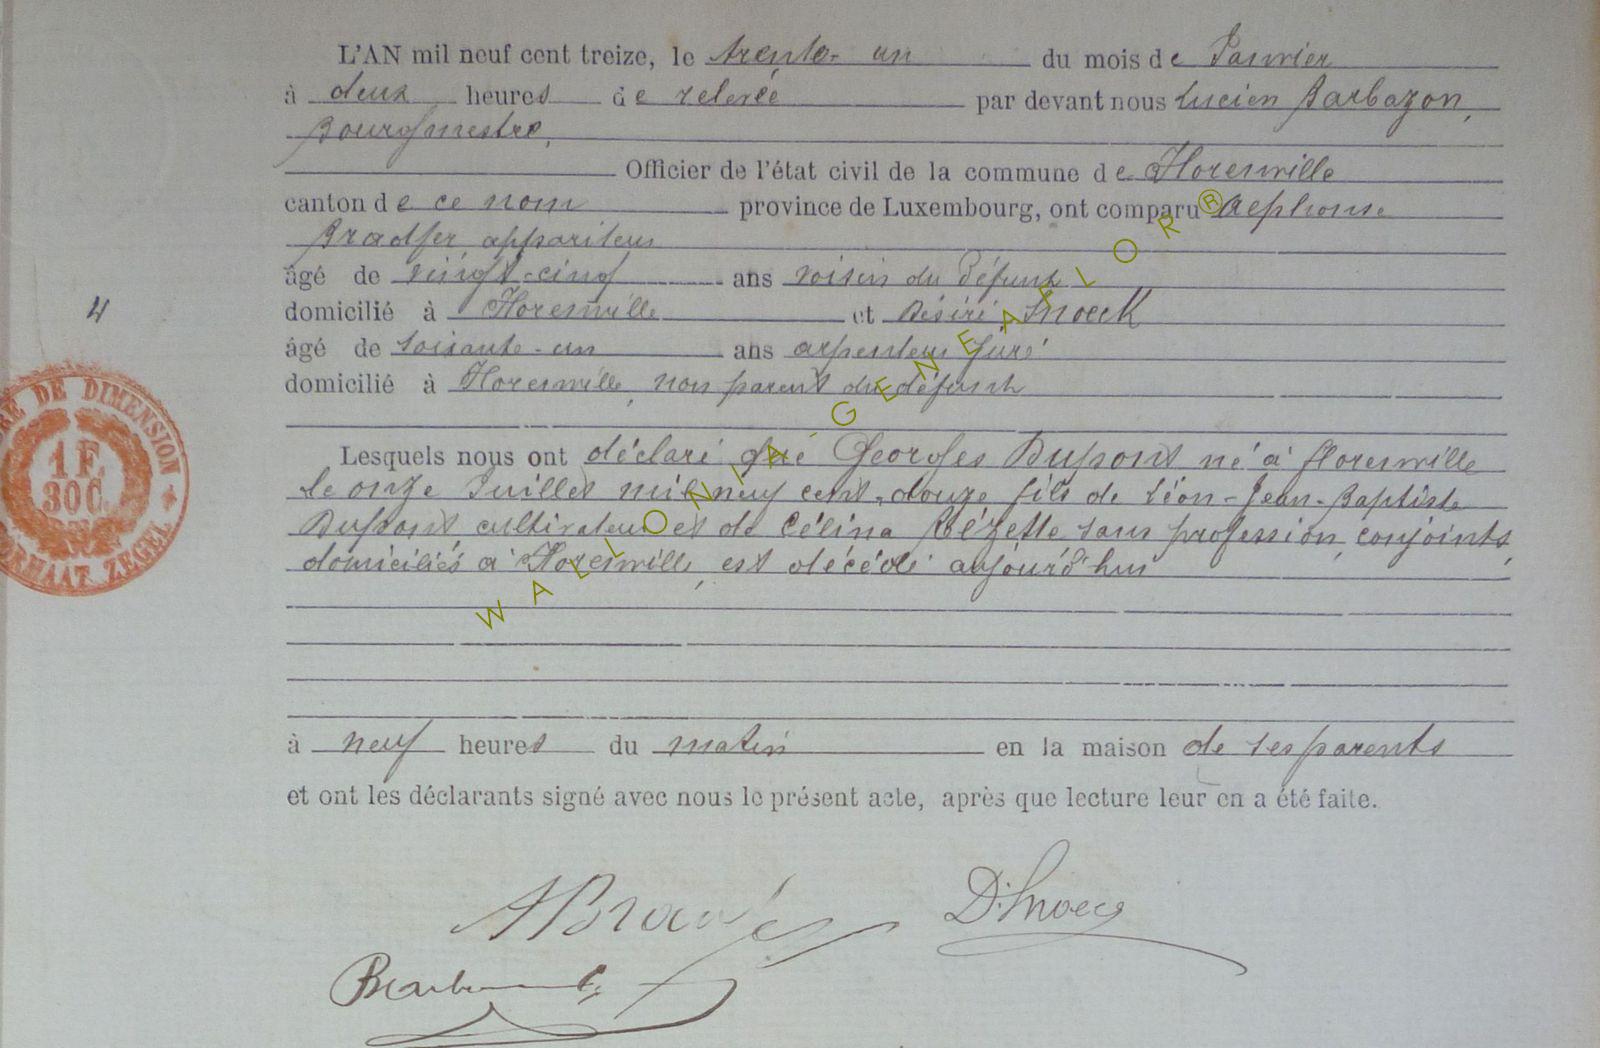 L'AN mil neuf cent treize, le trente-un du mois de Janvier
à deux heures de relevée par devant nous Lucien Barbazon,
Bourgmestre,
Officier de l'état civil de la commune de Florenville
canton de ce nom province de Luxembourg, ont comparu Alphonse
Bradfer appariteur
âgé de vingt-cinq ans voisin du défunt
domicilié à Florenville et Désiré Snoeck
âgé de soixante-un ans arpenteur juré
4
domicilié à Florenville, non parent du défunt
TIMBRE DE DIMENSION
1 F.
30 C.
FORMAAT ZEGEL
Lesquels nous ont déclaré que Georges Dupont né à Florenville
le onze Juillet mil neuf cent douze fils de Léon-Jean-Baptiste
Dupont, cultivateur et de Célina Rézette sans profession, conjoints,
domiciliés à Florenville, est décédé aujourd'hui
à neuf heures du matin en la maison de ses parents
et ont les déclarants signé avec nous le présent acte, après que lecture leur en a été faite.
ABradfer D. Snoeck
WALLONIA-GENEAFLOR®